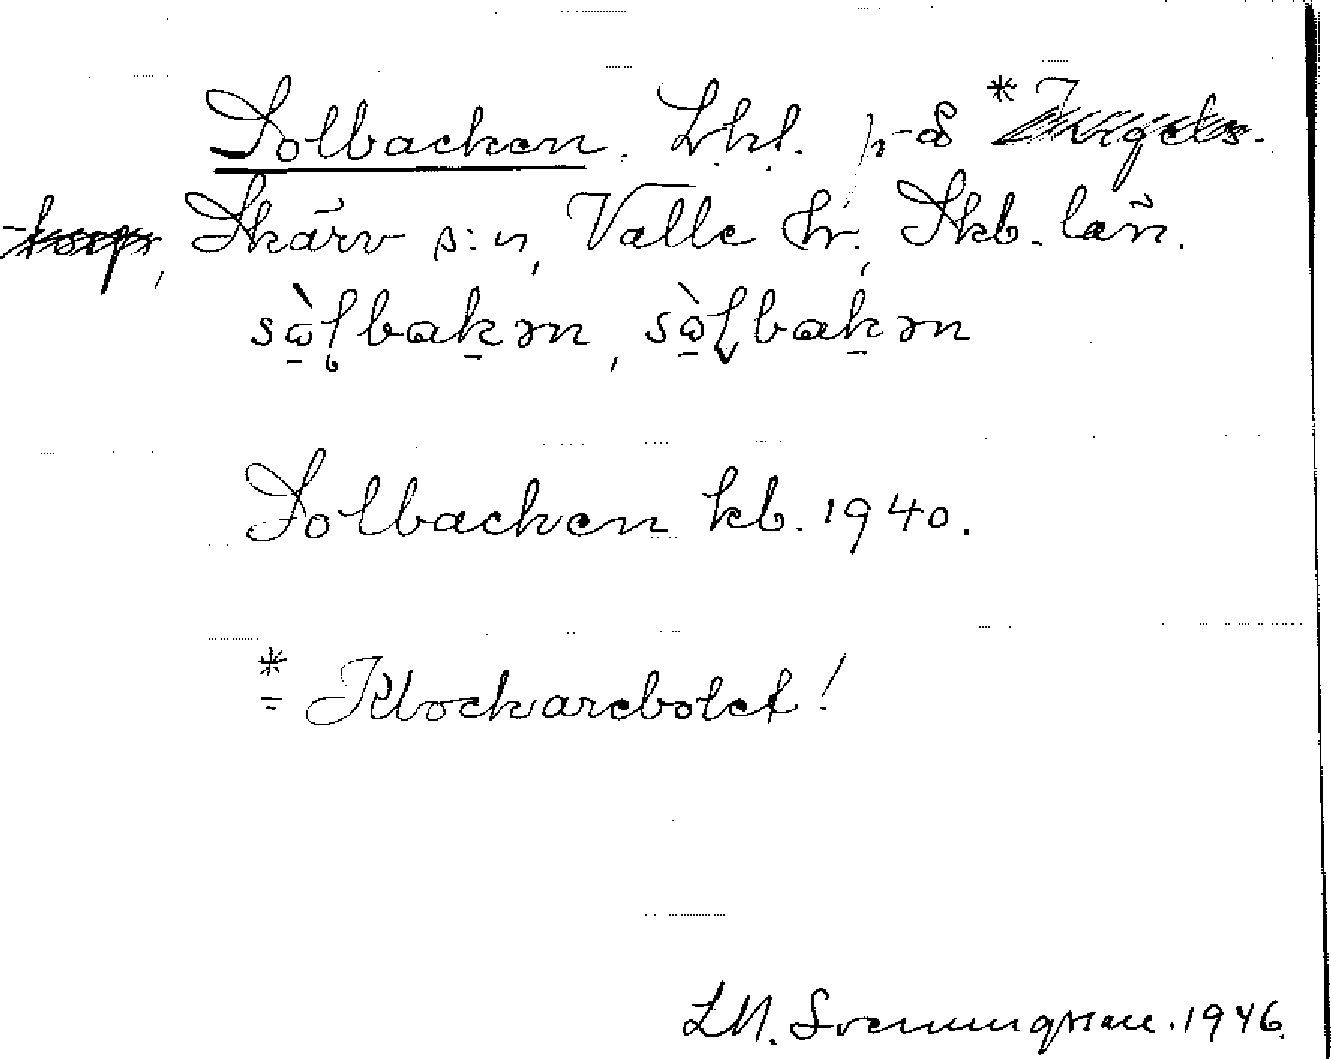 Solbacken. Lht. på *
Skärv s:n, Valle hr, Skb. län.
sò̱lbaḵən, sò̱lbaḵən
Solbacken kb. 1940.
* = Klockarebolet!
LM. Svenungsson. 1946.